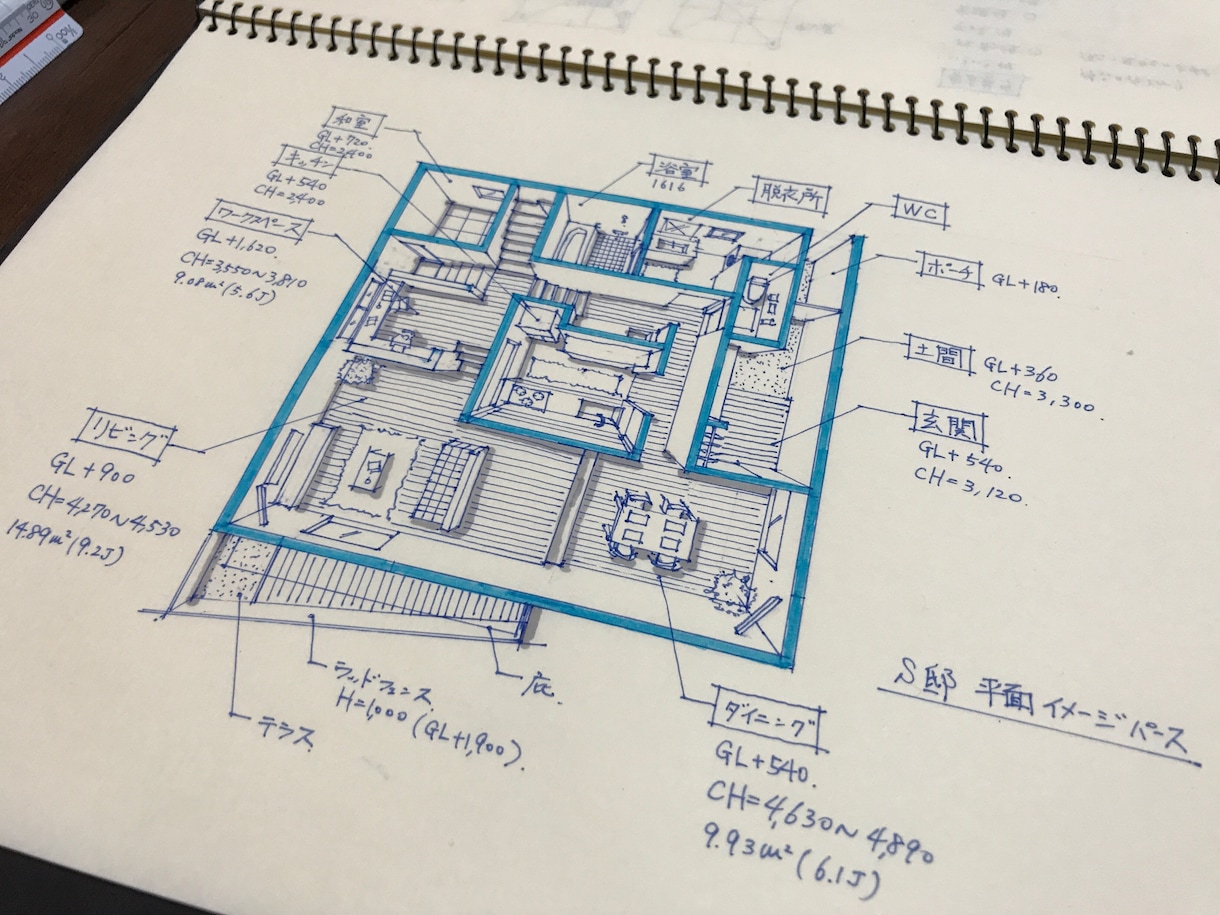 和室
GL+720.
CH=2,400
キッチン
GL+540
CH=2,400
ワークスペース
GL+1,620.
CH=3,550~3,810
9.08m²(5.6J)
リビング
GL+900
CH=4,270~4,530
14.89m²(9.2J)
浴室
1616
脱衣所
WC
ポーチ GL+180.
土間 GL+360
CH=3,300.
玄関
GL+540.
CH=3,120.
庇.
ウッドフェンス
H=1,000 (GL+1,900).
テラス
ダイニング
GL+540.
CH=4,630~4,890
9.93m²(6.1J)
S邸 平面イメージパース